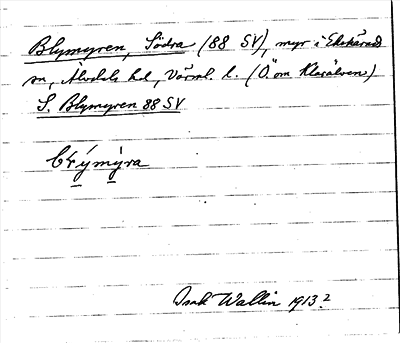 Blymyren, Södra (88 SV), myr i Ekshärads
sn, Älvdals hd, Värml. l. (Ö. om Klarälven)
S. Blymyren 88 SV
blýmýra
Isak Wallin 1913?